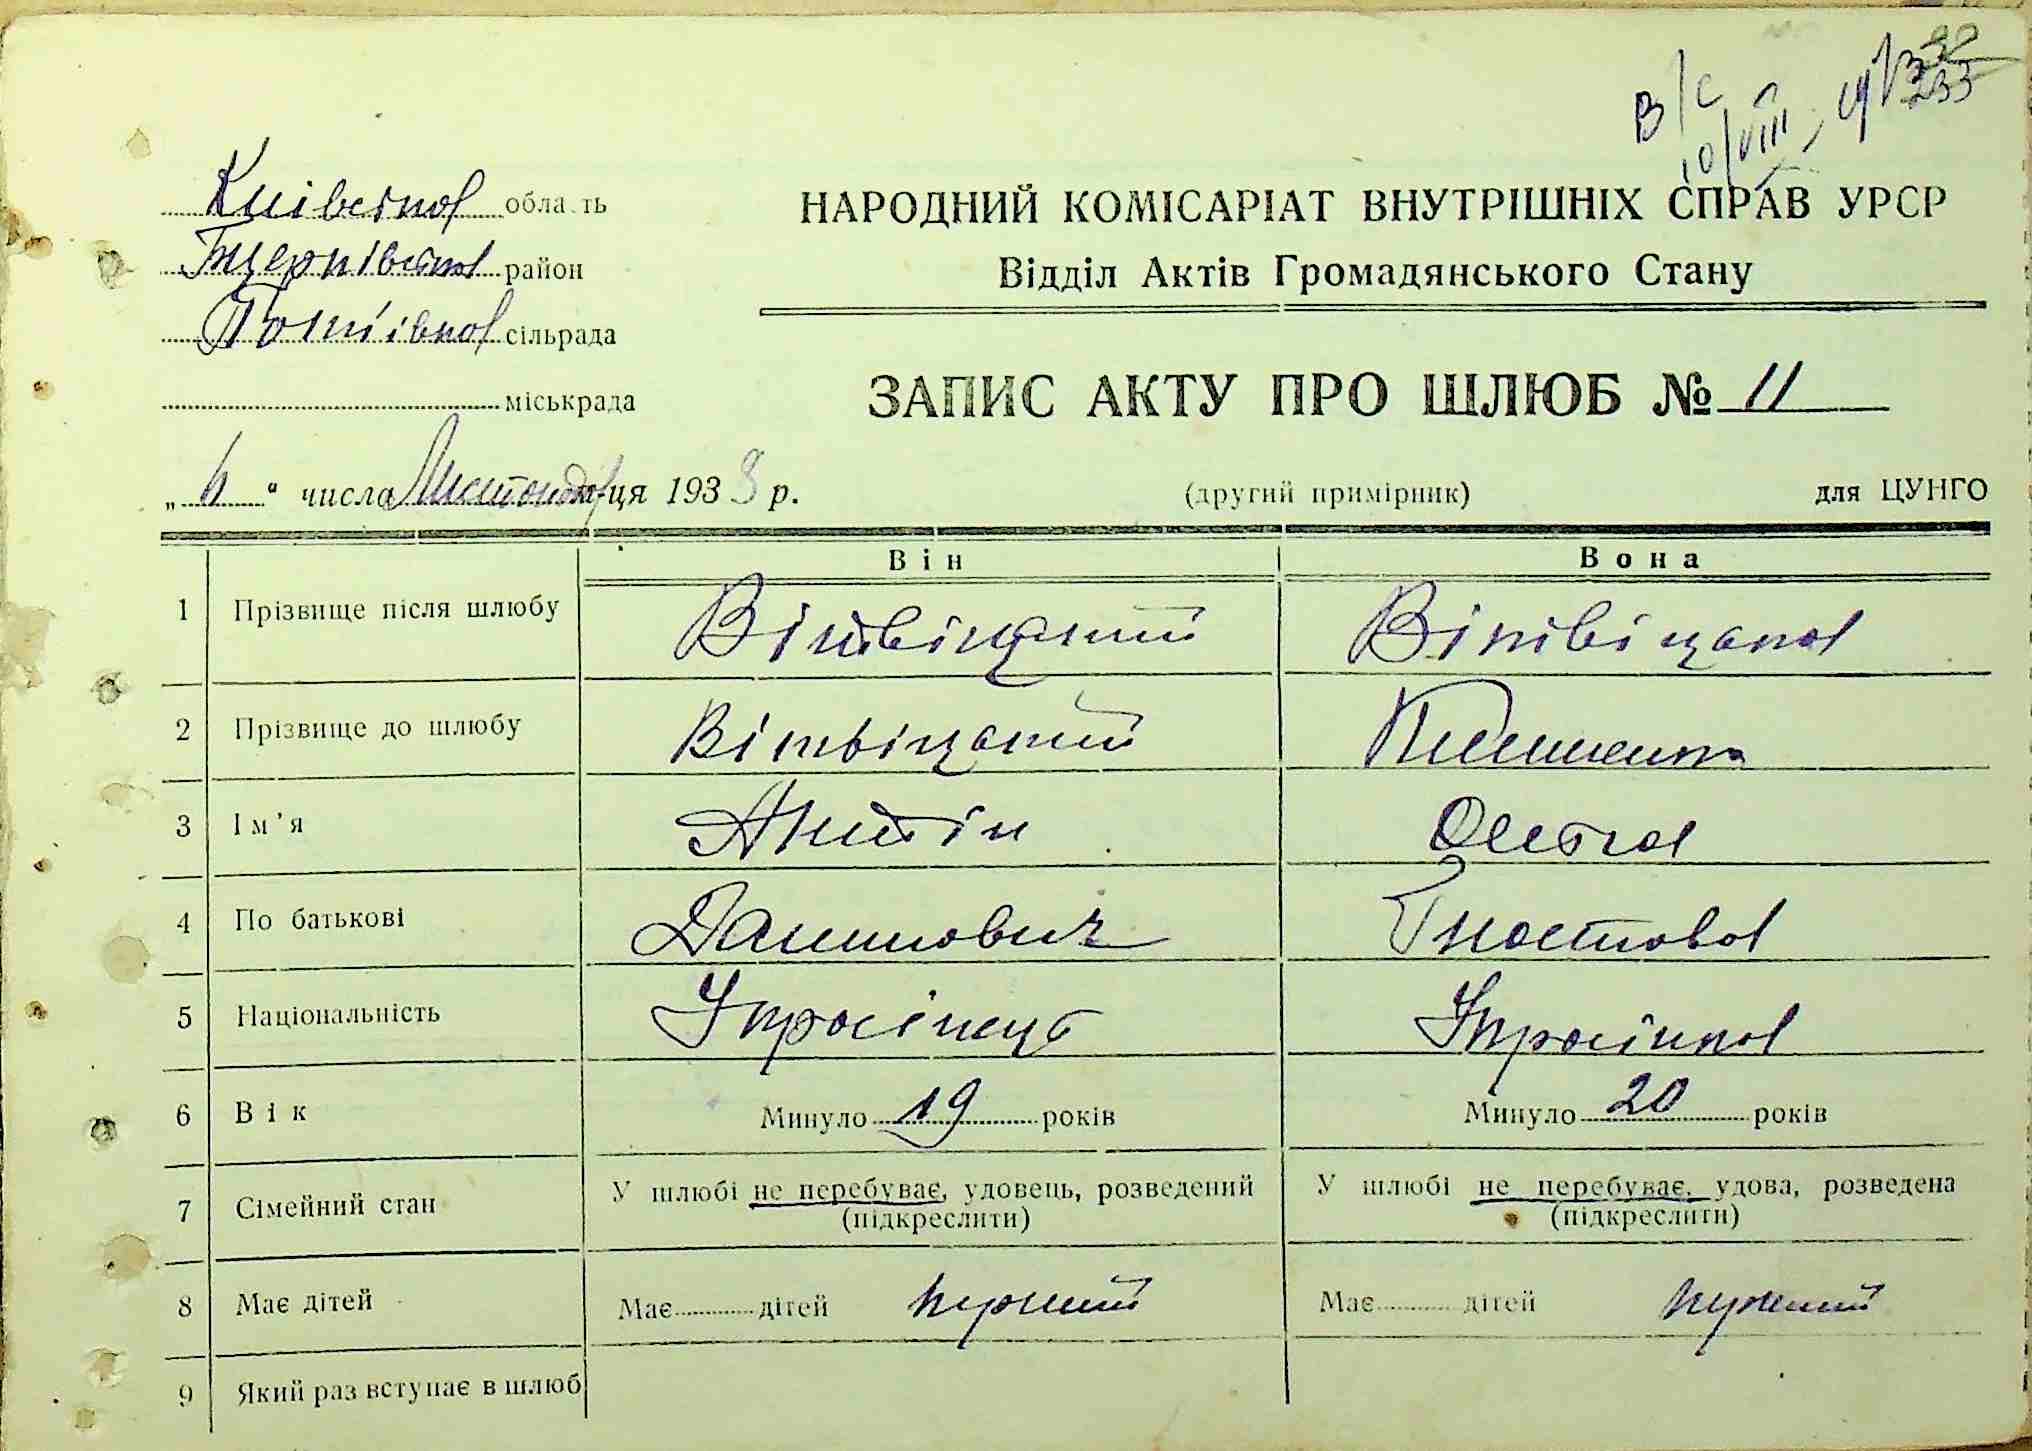 В/С
10/VIII
Київська область
район
Потіївка сільрада
міськрада
НАРОДНИЙ КОМІСАРІАТ ВНУТРІШНІХ СПРАВ УРСР
Відділ Актів Громадянського Стану
ЗАПИС АКТУ ПРО ШЛЮБ № 11
„6“ числа Листопада м-ця 1938 р.
(другий примірник)
для ЦУНГО
Він
Вона
1 Прізвище після шлюбу Вітвіцький Вітвіцька
2 Прізвище до шлюбу Вітвіцький
3 Ім'я Антін
4 По батькові Данилович
5 Національність Українець Українка
6 Вік Минуло 19 років Минуло 20 років
7 Сімейний стан У шлюбі не перебуває, удовець, розведений У шлюбі не перебуває, удова, розведена
(підкреслити) (підкреслити)
8 Має дітей Має дітей перший Має дітей перший
9 Який раз вступає в шлюб